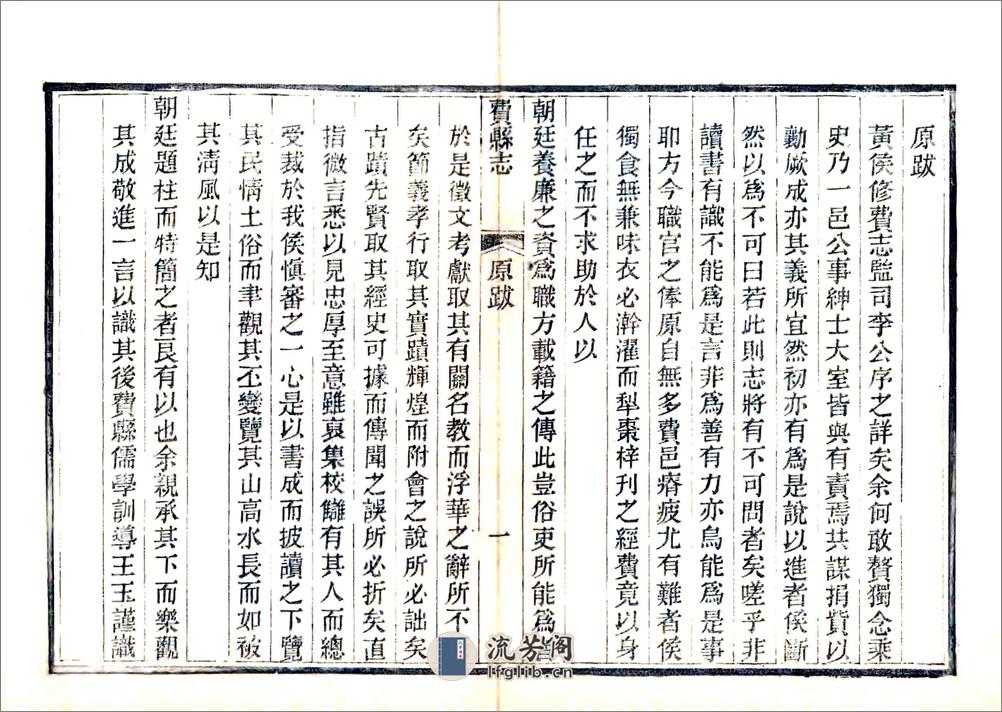 原跋
黃侯修費志監司李公序之詳矣余何敢贅獨念乘
史乃一邑公事紳士大室皆與有責焉共謀捐貲以
勷厥成亦其義所宜然初亦有爲是說以進者侯斷
然以爲不可曰若此則志將有不可問者矣嗟乎非
讀書有識不能爲是言非爲善有力亦烏能爲是事
耶方今職官之俸原自無多費邑瘠疲尤有難者侯
獨食無兼味衣必澣濯而犁棗梓刊之經費竟以身
任之而不求助於人以
朝廷養廉之資爲職方載籍之傳此豈俗吏所能爲
費縣志
原跋
一
於是徵文考獻取其有關名教而浮華之辭所不
矣節義孝行取其實蹟輝煌而附會之說所必詘矣
古蹟先賢取其經史可據而傳聞之誤所必折矣直
指微言悉以見忠厚至意雖裒集校讎有其人而總
受裁於我侯愼審之一心是以書成而披讀之下覽
其民情土俗而聿觀其丕變覽其山高水長而如被
其淸風以是知
朝廷題柱而特簡之者良有以也余親承其下而樂觀
其成敬進一言以識其後費縣儒學訓導王玉謹識
流芳阁
lfglib.cn